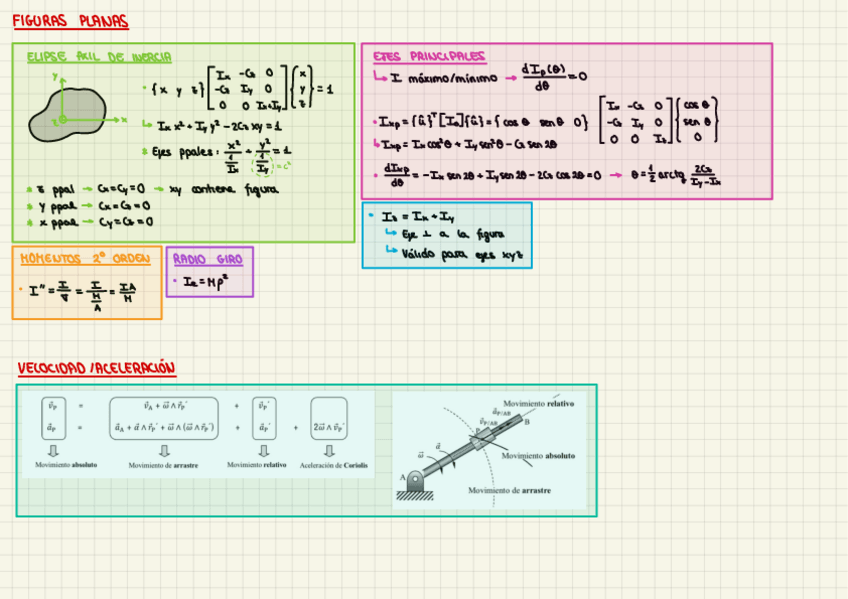 FIGURAS PLANAS
ELIPSE AXIL DE INERCIA
y
x
z
• {x y z} [Ix -Cz 0; -Cz Iy 0; 0 0 Ix+Iy] {x; y; z} = 1
↳ Ix x² + Iy y² - 2Cz xy = 1
Ejes ppales: x²/(1/Ix) + y²/(1/Iy) = 1
z ppal → Cx = Cy = 0 → xy contiene figura
y ppal → Cx = Cz = 0
x ppal → Cy = Cz = 0
EJES PRINCIPALES
↳ I máximo/mínimo → dIp(θ)/dθ = 0
• Ixp = {û}ᵀ[Io]{û} = {cos θ sen θ 0} [Ix -Cz 0; -Cz Iy 0; 0 0 Iz] {cos θ; sen θ; 0}
↳ Ixp = Ix cos²θ + Iy sen²θ - Cz sen 2θ
• dIxp/dθ = -Ix sen 2θ + Iy sen 2θ - 2Cz cos 2θ = 0 → θ = 1/2 arctg 2Cz/(Iy-Ix)
• Iz = Ix + Iy
↳ Eje ⊥ a la figura
↳ Válido para ejes xyz
MOMENTOS 2º ORDEN
• I" = I/∇ = I/(M/A) = IA/M
RADIO GIRO
• Ie = Mρ²
VELOCIDAD/ACELERACIÓN
v⃗P = v⃗A + ω⃗ ∧ r⃗P′ + v⃗P′
a⃗P = a⃗A + α⃗ ∧ r⃗P′ + ω⃗ ∧ (ω⃗ ∧ r⃗P′) + a⃗P′ + 2ω⃗ ∧ v⃗P′
Movimiento absoluto Movimiento de arrastre Movimiento relativo Aceleración de Coriolis
Movimiento relativo
a⃗P/AB
v⃗P/AB
B
P
α⃗
ω⃗
Movimiento absoluto
A
Movimiento de arrastre